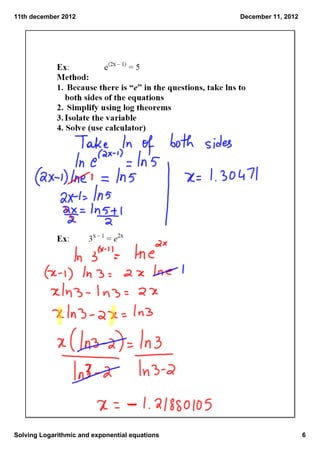 11th december 2012 December 11, 2012
Ex: e^(2x – 1) = 5
Method:
1. Because there is “e” in the questions, take lns to
both sides of the equations
2. Simplify using log theorems
3. Isolate the variable
4. Solve (use calculator)
Take ln of both sides
ln e^(2x-1) = ln5
(2x-1) lne^1 = ln5 x= 1.30471
2x-1= ln5
2x/2 = ln5+1/2
Ex: 3^(x – 1) = e^(2x)
ln 3^(x-1) = lne^2x
(x-1) ln 3 = 2x lne 1
xln3-ln3= 2x
xln3-2x= ln3
x(ln3-2)/ln3-2 = ln3/ln3-2
x = -1.21880105
Solving Logarithmic and exponential equations 6